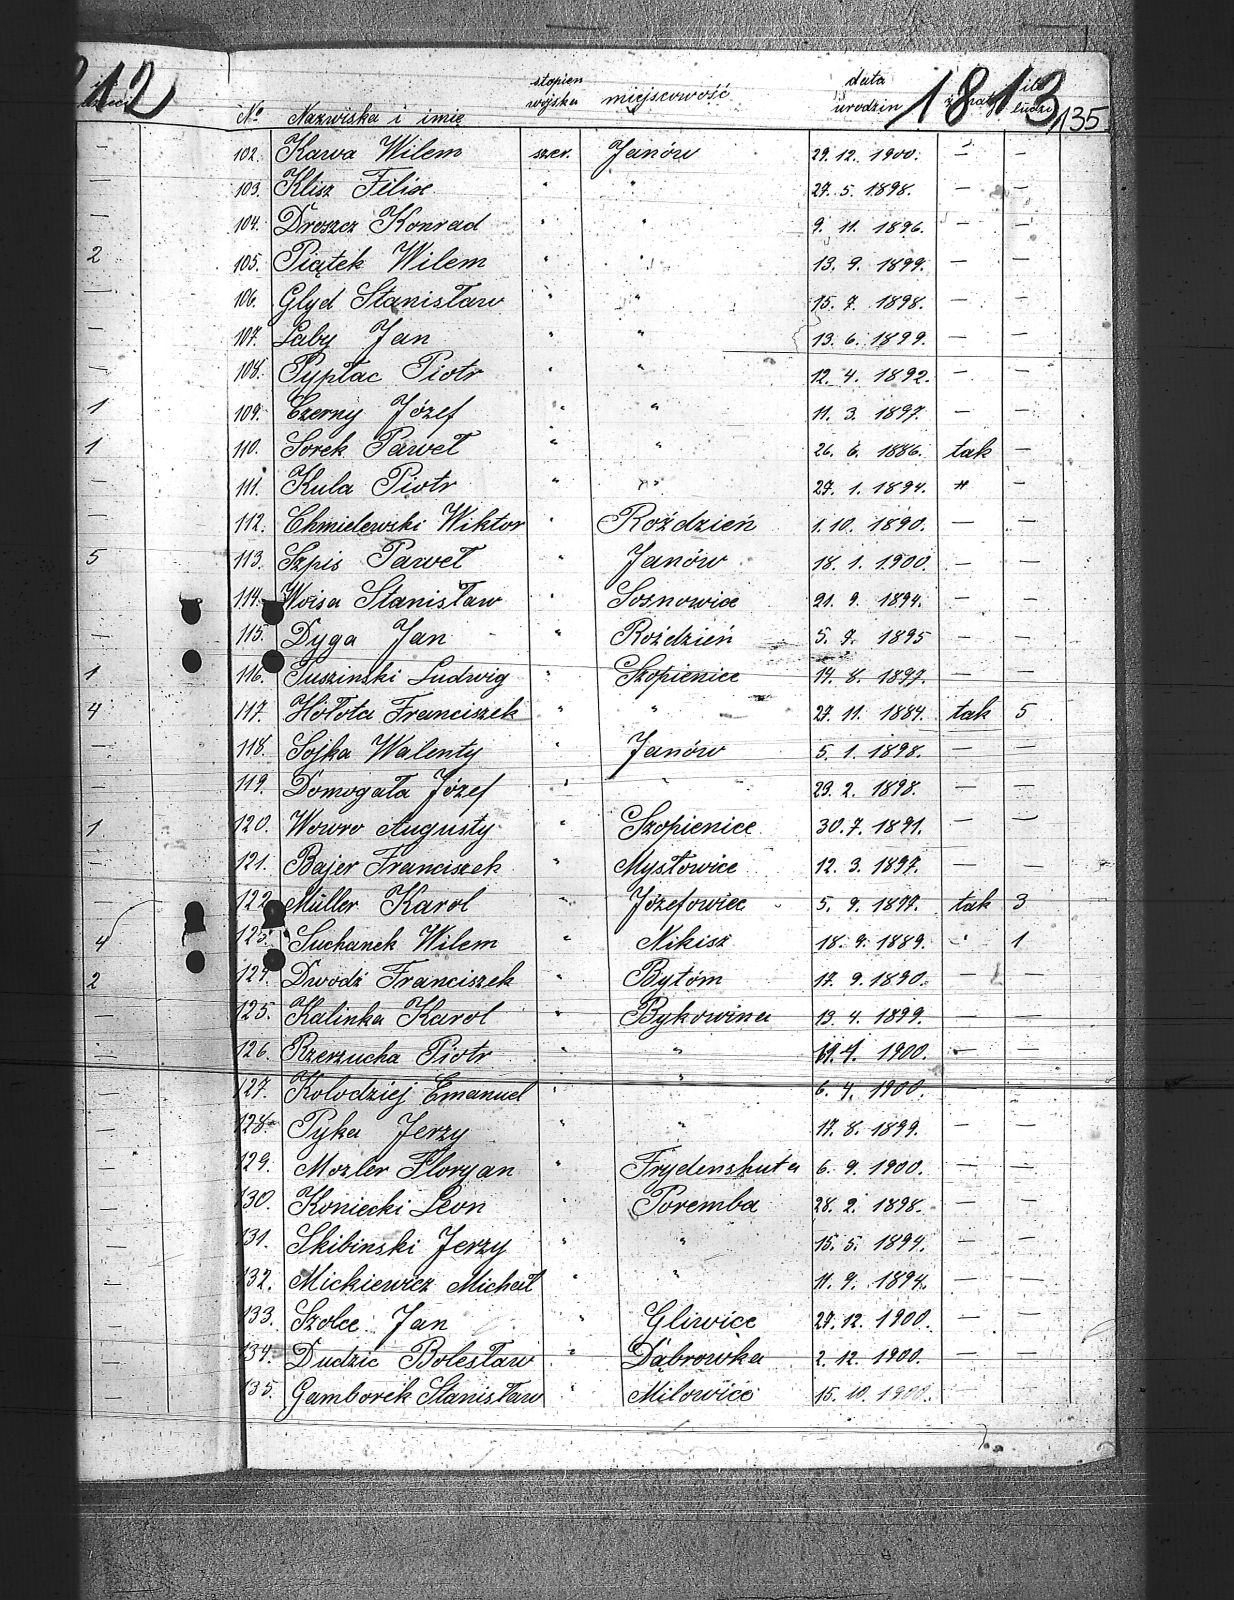 212
1813
135
№ Nazwiska i imię stopien wojska miejscowość data urodzin
102. Kawa Wilem szer. Janów 29. 12. 1900. — —
— 103. Klisz Filix " " 27. 5. 1898. — —
— 104. Droszcz Konrad " " 9. 11. 1896. — —
2 105. Piątek Wilem " " 13. 9. 1899. — —
— 106. Glyd Stanisław " " 15. 7. 1898. — —
— 107. Laby Jan " " 13. 6. 1899. — —
— 108. Pypłac Piotr " " 12. 4. 1892. — —
1 109. Czerny Józef " " 11. 3. 1897. — —
1 110. Sorek Paweł " " 26. 6. 1886. tak —
— 111. Kula Piotr " " 27. 1. 1894. " —
— 112. Chmielewski Wiktor " Roździeń 1. 10. 1890. — —
5 113. Szpis Paweł " Janów 18. 1. 1900. — —
— 114. Woisa Stanisław " Sosnowice 21. 9. 1894. — —
— 115. Dyga Jan " Roździeń 5. 7. 1895 — —
1 116. Tuszinski Ludwig " Szopienice 14. 8. 1897. — —
4 117. Hołota Franciszek " " 27. 11. 1884. tak 5
— 118. Sojka Walenty " Janów 5. 1. 1898. — —
— 119. Domogała Józef " " 29. 2. 1898. — —
1 120. Wowro Augusty " Szopienice 30. 7. 1891. — —
— 121. Bajer Franciszek " Mysłowice 12. 3. 1897. — —
— 122. Müller Karol Józefowice 5. 9. 1877. tak 3
4 123. Suchanek Wilem " Nikisz 18. 9. 1889. " 1
2 124. Dwodź Franciszek " Bytom 17. 9. 1890. — —
— 125. Kalinka Karol " Bykowina 13. 4. 1899. — —
— 126. Rzerzucha Piotr " " 1900. — —
— 127. Kolodziej Emanuel " " 6. 4. 1900. — —
— 128. Pyka Jerzy " " 17. 8. 1899. — —
— 129. Mozler Floryan " Frydenshuta 6. 9. 1900. — —
— 130. Koniecki Leon " Poremba 28. 2. 1898. — —
— 131. Skibinski Jerzy " " 15. 5. 1894. — —
— 132. Mickiewicz Michał " " 11. 9. 1894. — —
— 133. Szolce Jan " Gliwice 27. 12. 1900. — —
— 134. Dudzic Bolesław " Dąbrowka 2. 12. 1900. — —
— 135. Gamborek Stanisław " Milowice 15. 10. 1900. — —